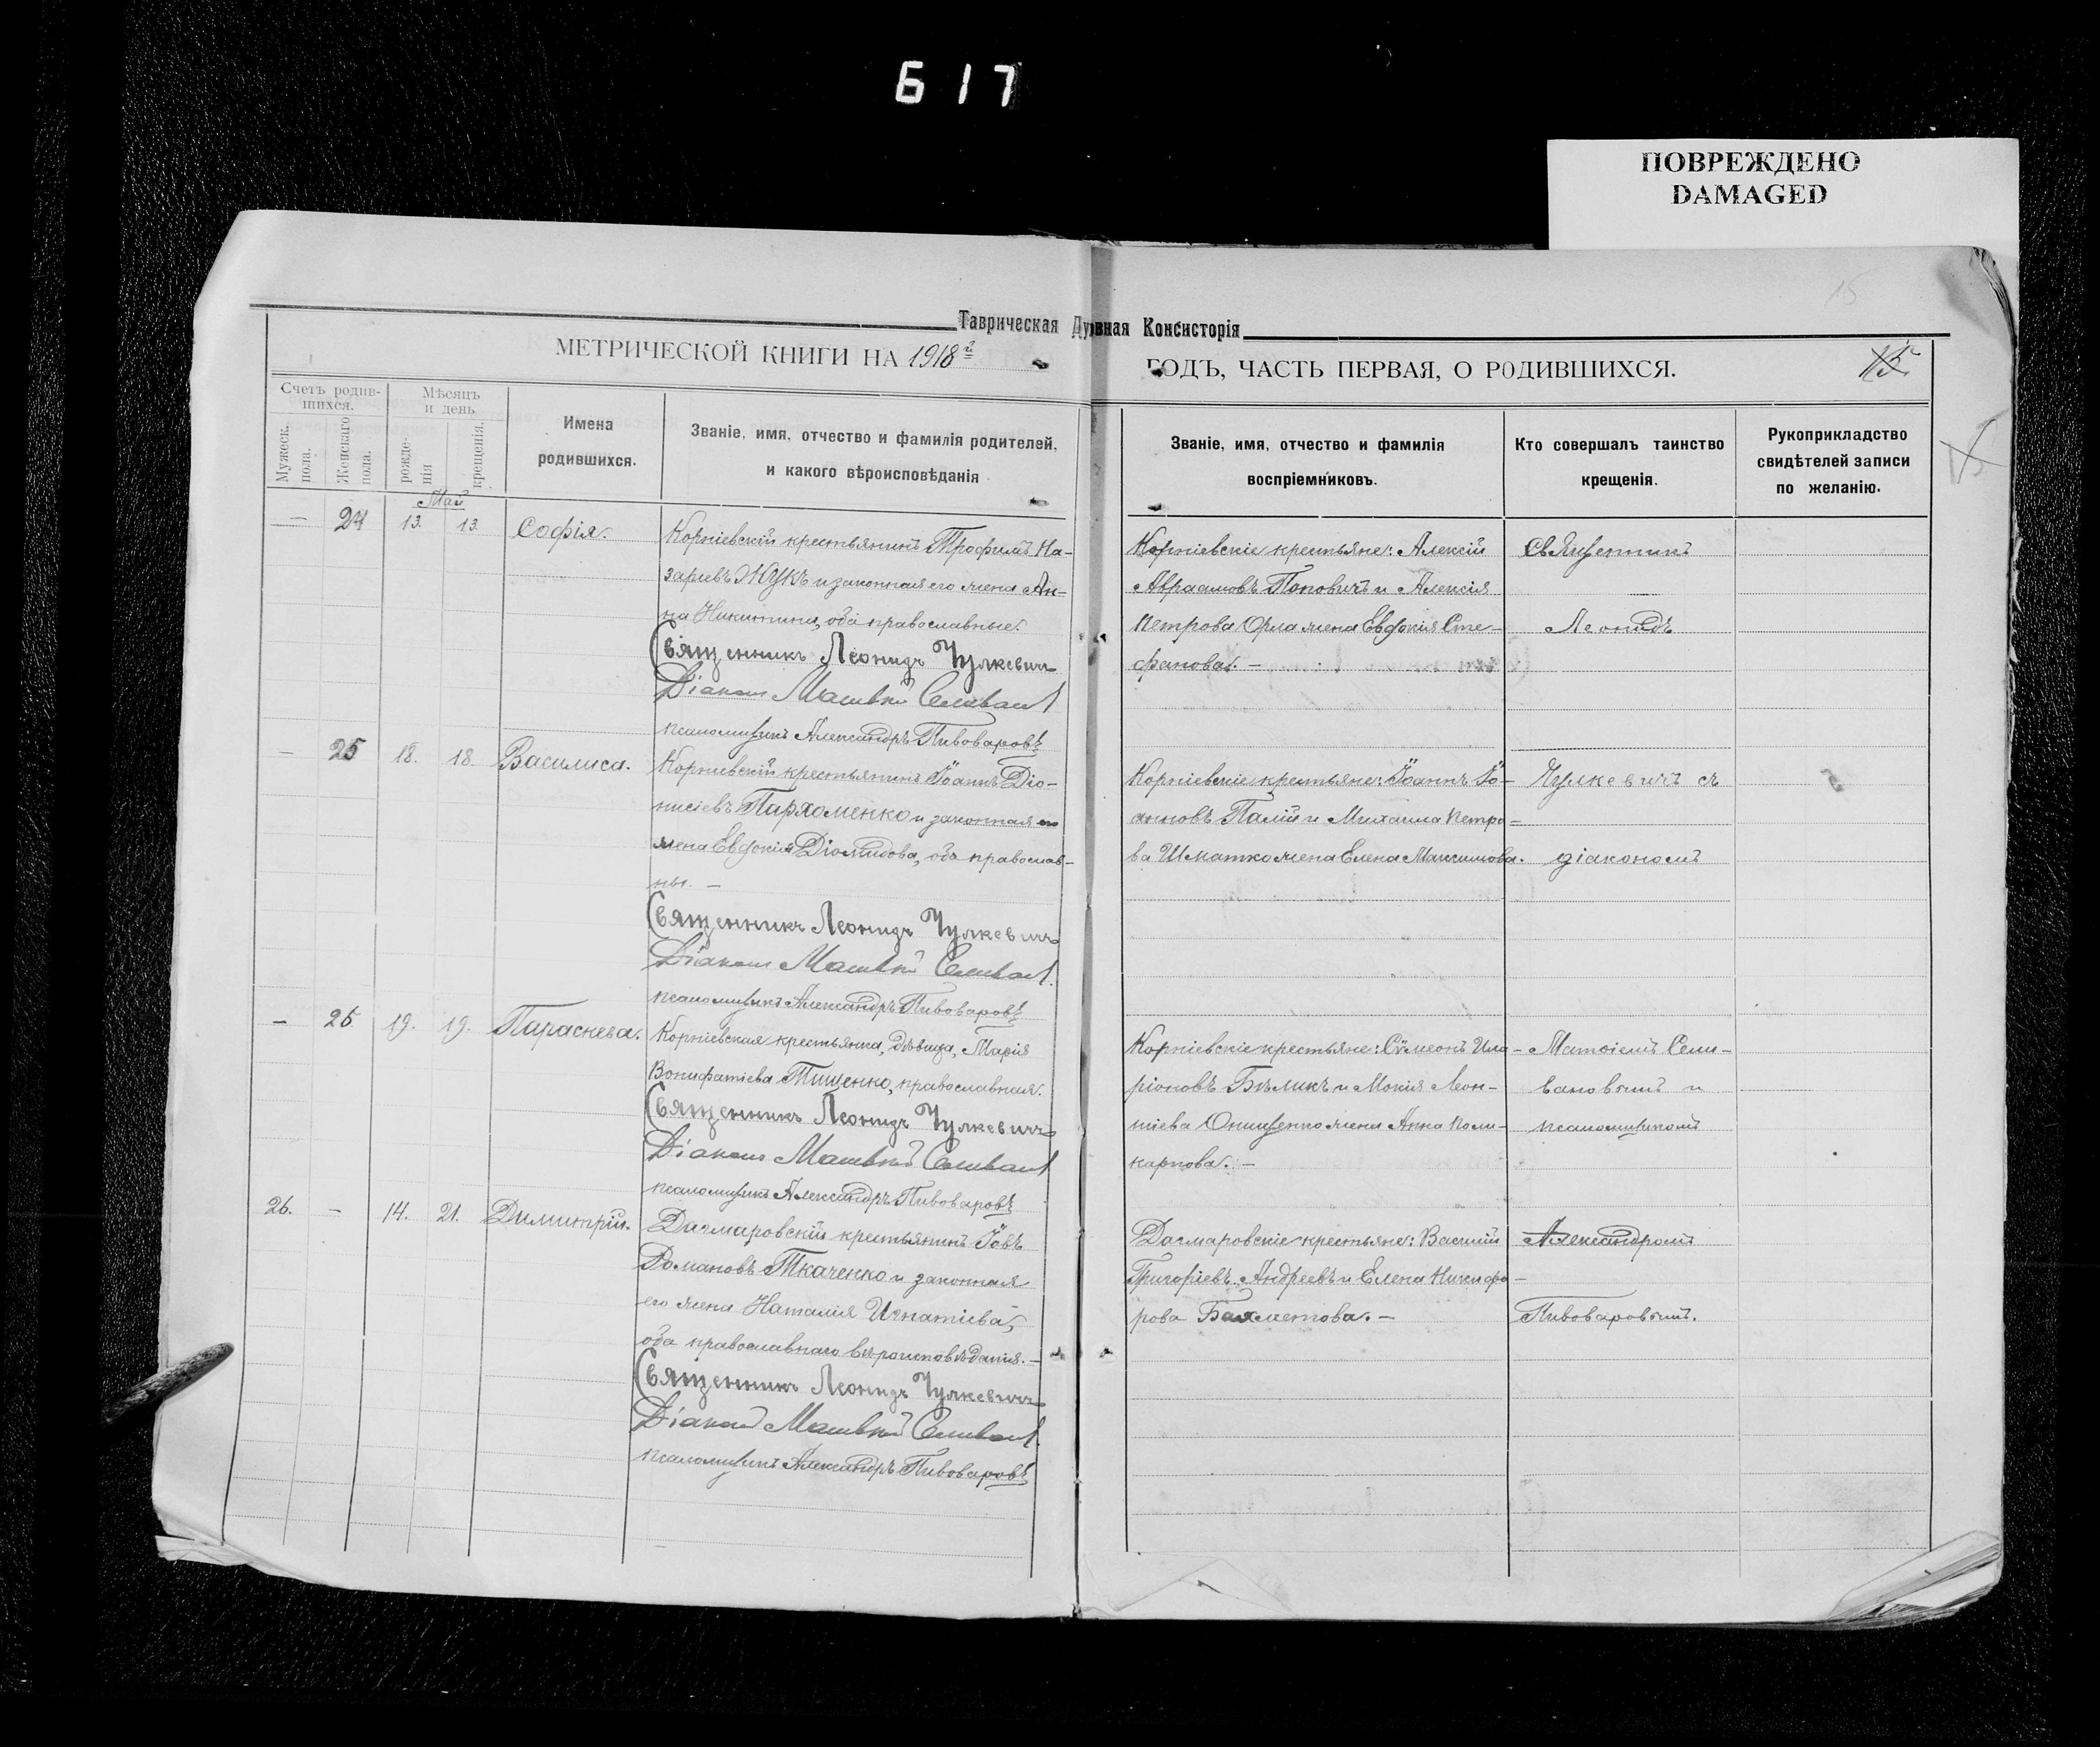 617
ПОВРЕЖДЕНО
DAMAGED
15
Таврическая Духовная Консисторія
МЕТРИЧЕСКОЙ КНИГИ НА 1918й
ГОДЪ, ЧАСТЬ ПЕРВАЯ, О РОДИВШИХСЯ.
15
Счетъ родив-
шихся.
Мужеск.
пола.
Женскаго
пола.
Мѣсяцъ
и день
рожде-
нія
крещенія.
Имена
родившихся.
Званіе, имя, отчество и фамилія родителей,
и какого вѣроисповѣданія
Званіе, имя, отчество и фамилія
воспріемниковъ.
Кто совершалъ таинство
крещенія.
Рукоприкладство
свидѣтелей записи
по желанію.
Май
— 24 13. 13. Софія.
Корніевскій крестьянинъ Трофимъ На-
заріевъ Жукъ и законная его жена Ан-
на Никитина, оба православные.
Священникъ Леонидъ Чулкевичъ
Діаконъ Матѳій Селивановъ
псаломщикъ Александръ Пивоваровъ
Корніевскіе крестьяне: Алексій
Авраамовъ Поповичъ и Алексія
Петрова Орла жена Евдокія Сте-
фанова. —
Священникъ
Леонидъ
— 25 18. 18. Василиса.
Корніевскій крестьянинъ Іоаннъ Діо-
нисіевъ Пархоменко и законная его
жена Евдокія Діомидова, оба православ-
ны. —
Священникъ Леонидъ Чулкевичъ
Діаконъ Матѳій Селивановъ
псаломщикъ Александръ Пивоваровъ
Корніевскіе крестьяне: Іоаннъ Іо-
анновъ Палій и Михаила Петро-
ва Шматко жена Елена Максимова.
Чулкевичъ съ
діакономъ
— 26 19. 19. Параскева.
Корніевская крестьянка, дѣвица, Марія
Вонифатіева Тищенко, православная.
Священникъ Леонидъ Чулкевичъ
Діаконъ Матѳій Селивановъ
псаломщикъ Александръ Пивоваровъ
Корніевскіе крестьяне: Сѵмеонъ Ила-
ріоновъ Бѣликъ и Мокія Леон-
тіева Онищенко жена Анна Поли-
карпова. —
Матѳіемъ Сели-
вановымъ и
псаломщикомъ
26. — 14. 21. Димитрій.
Дагмаровскій крестьянинъ Іовъ
Домановъ Ткаченко и законная
его жена Наталія Игнатіева,
оба православнаго вѣроисповѣданія. —
Священникъ Леонидъ Чулкевичъ
Діаконъ Матѳій Селивановъ
псаломщикъ Александръ Пивоваровъ
Дагмаровскіе крестьяне: Василій
Григоріевъ Андреевъ и Елена Никифо-
рова Бахметова. —
Александромъ
Пивоваровымъ.